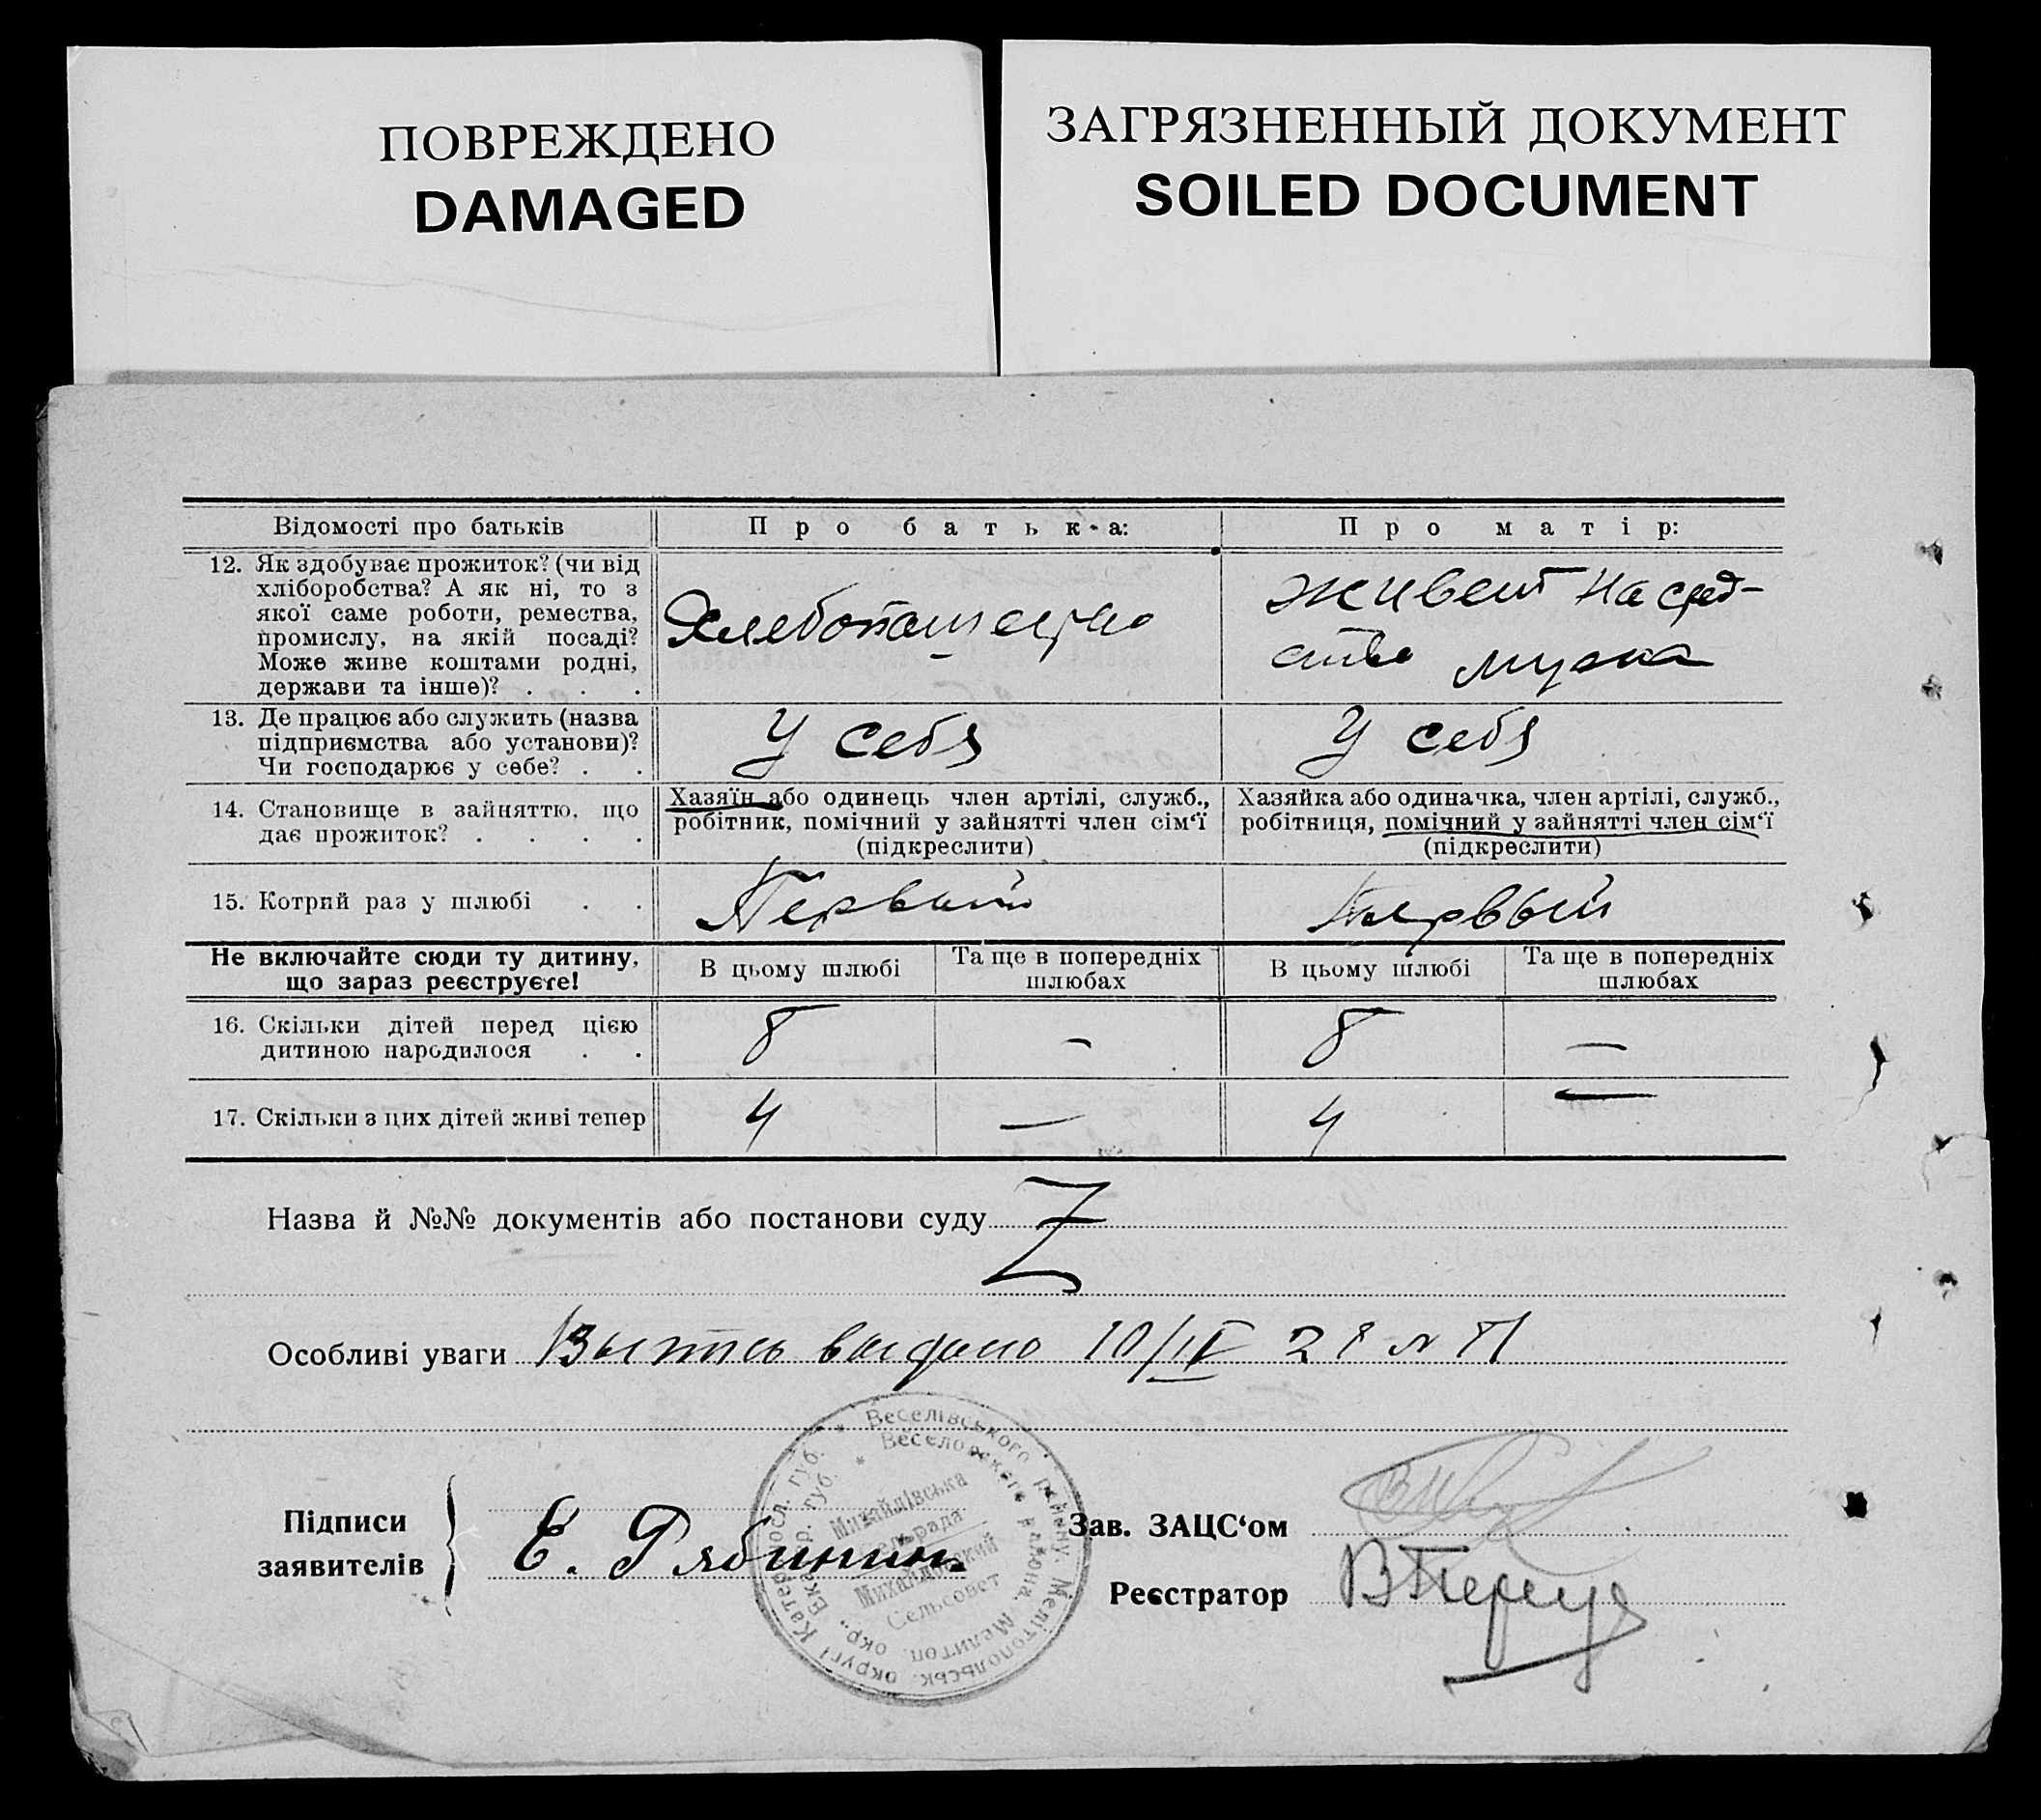 ПОВРЕЖДЕНО
DAMAGED
ЗАГРЯЗНЕННЫЙ ДОКУМЕНТ
SOILED DOCUMENT
Відомості про батьків
Про батька:
Про матір:
12. Як здобуває прожиток? (чи від
хліборобства? А як ні, то з
якої саме роботи, ремества,
промислу, на якій посаді?
Може живе коштами родні,
держави та інше)? . . .
Хлебопашество
живет на сред-
ства мужа
13. Де працює або служить (назва
підприємства або установи)?
Чи господарює у себе? . .
У себя
У себя
14. Становище в зайняттю, що
дає прожиток? . . . .
Хазяїн або одинець член артілі, служб.,
робітник, помічний у зайнятті член сім‘ї
(підкреслити)
Хазяйка або одиначка, член артілі, служб.,
робітниця, помічний у зайнятті член сім‘ї
(підкреслити)
15. Котрий раз у шлюбі . .
Первый
Первый
Не включайте сюди ту дитину,
що зараз реєструєте!
В цьому шлюбі
Та ще в попередніх
шлюбах
В цьому шлюбі
Та ще в попередніх
шлюбах
16. Скільки дітей перед цією
дитиною народилося . .
8
—
8
—
17. Скільки з цих дітей живі тепер
4
—
4
—
Назва й №№ документів або постанови суду
Z
Особливі уваги
Выпись выдано 10/IV 28 №
Підписи
заявителів
Е. Рябинин
Веселівського району. Мелітопольськ. округі Катеросл. губ. *
Веселовского района. Мелитоп. окр., Екатер. губ. *
Михайлівська
сельрада
Михайловский
Сельсовет
Зав. ЗАЦС‘ом
Реєстратор